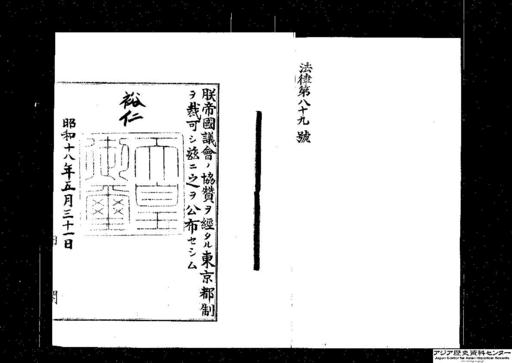 法律第八十九號
朕帝國議會ノ協贊ヲ經タル東京都制
ヲ裁可シ茲ニ之ヲ公布セシム
裕仁
天皇
御璽
昭和十八年五月三十一日
内閣
アジア歴史資料センター
Japan Center for Asian Historical Records